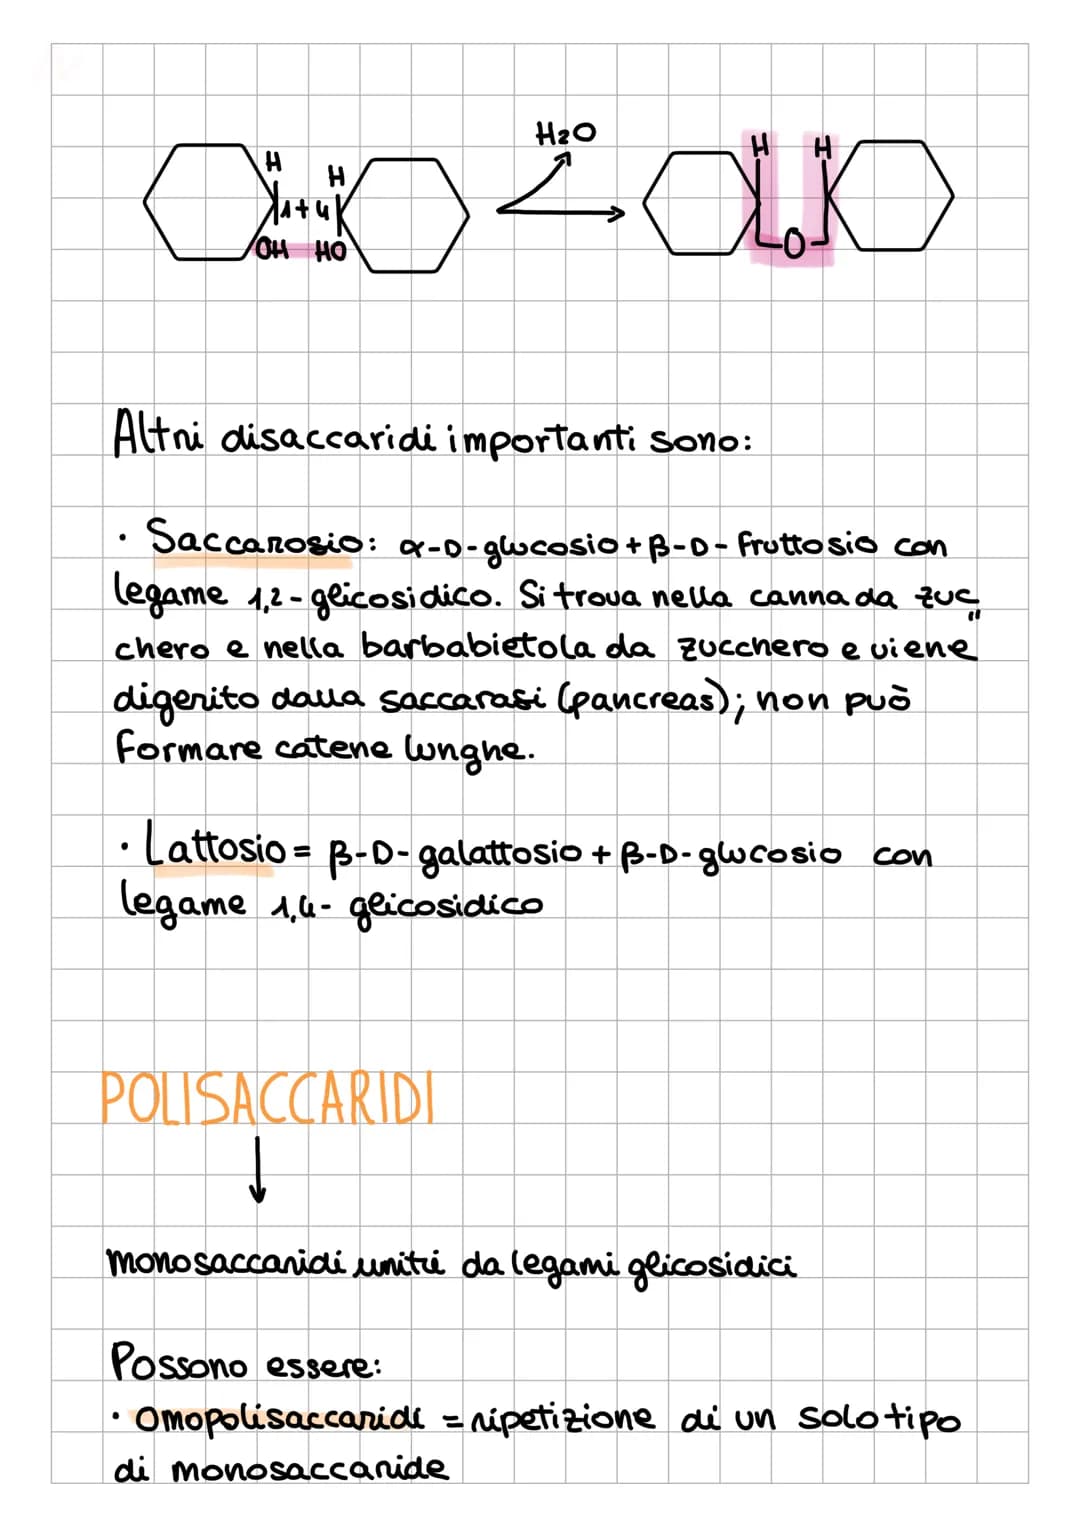 H H H₂O H H
1+4
OH HO O
Altri disaccaridi importanti sono:
· Saccarosio: α-D-glucosio + β-D-fruttosio con
legame 1,2-glicosidico. Si trova nella canna da zuc
chero e nella barbabietola da zucchero e viene
digerito dalla saccarasi (pancreas); non può
formare catene lunghe.
· Lattosio = β-D-galattosio + β-D-glucosio con
legame 1,4-glicosidico
POLISACCARIDI
monosaccaridi uniti da legami glicosidici
Possono essere:
· Omopolisaccaridi = ripetizione di un solo tipo
di monosaccaride